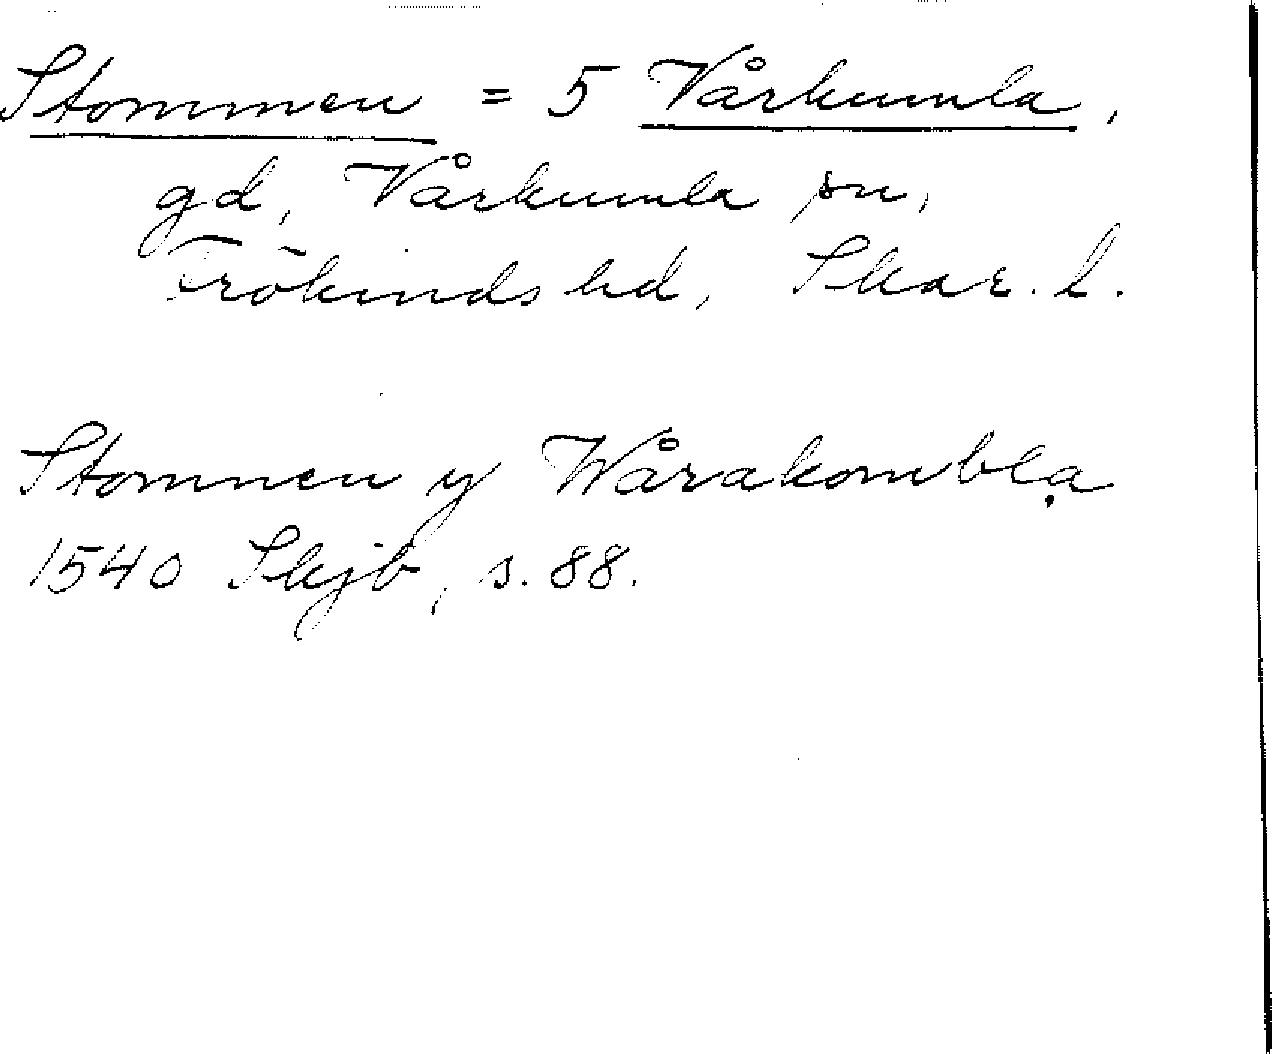 Stommen = 5 Vårkumla,
gd, Vårkumla sn,
Frökinds hd, Skar. l.
Stomnen y Wårakombla
1540 Skjb, s. 88.